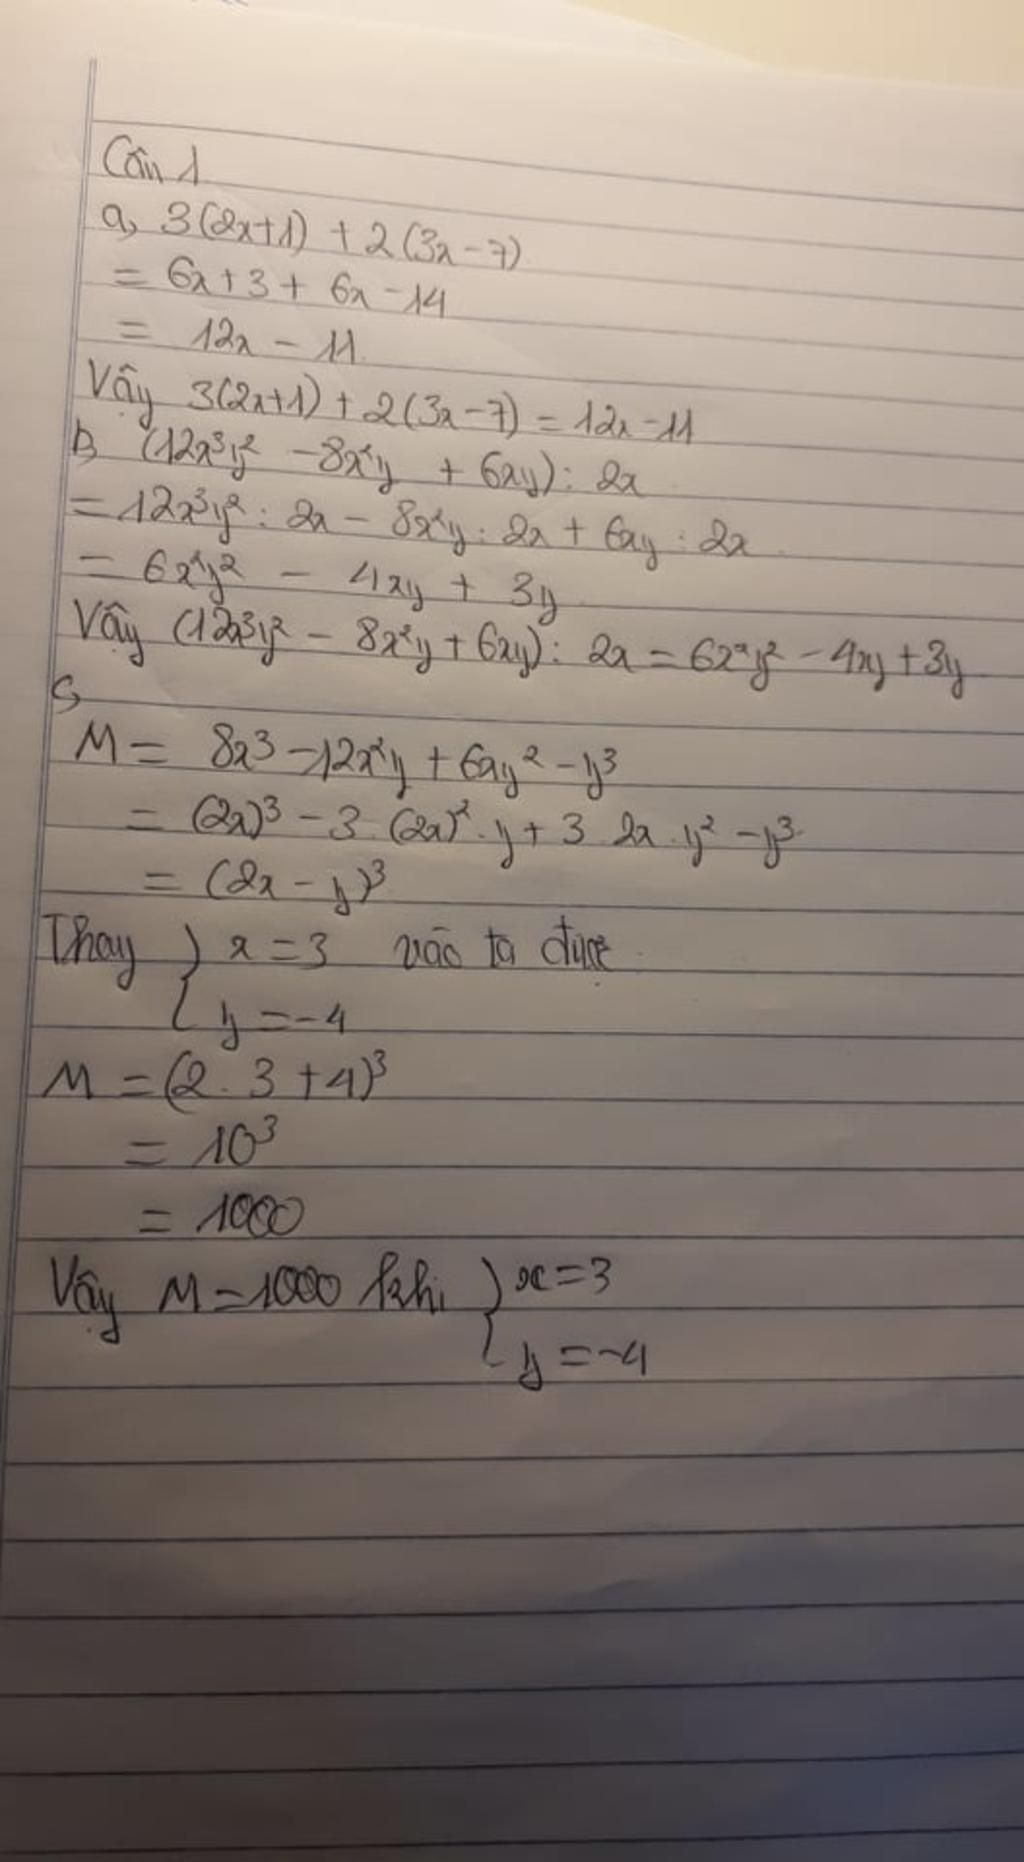 Câu 1
a, 3(2x+1) + 2(3x-7)
= 6x+3+ 6x-14
= 12x - 11
Vậy 3(2x+1) + 2(3x-7) = 12x-11
b, (12x³y² - 8x²y + 6xy) : 2x
= 12x³y² : 2x - 8x²y : 2x + 6xy : 2x
= 6x²y² - 4xy + 3y
Vậy (12x³y² - 8x²y + 6xy) : 2x = 6x²y² - 4xy + 3y
c,
M = 8x³ - 12x²y + 6xy² - y³
= (2x)³ - 3 . (2x)² . y + 3 . 2x . y² - y³
= (2x - y)³
Thay { x = 3 vào ta được
y = -4
M = (2 . 3 + 4)³
= 10³
= 1000
Vậy M = 1000 khi { x = 3
y = -4